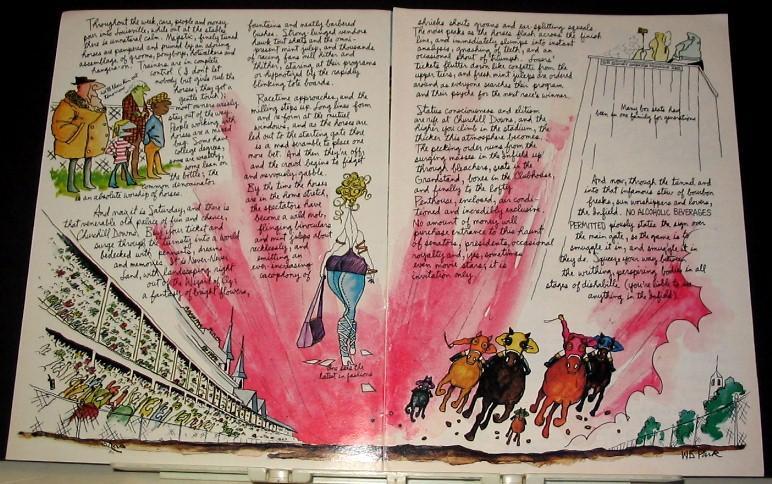 Throughout the week, cars, people and money
pour into Louisville, while out at the stables
there is unnatural calm. Majestic, finely tuned
horses are pampered and primed by an adoring
assemblage of grooms, ponyboys, hotwalkers and
hangers-on. Trainers are in complete
control. (I don't let
nobody but girls rub the
horses; they got a
gentle touch);
most owners wisely
stay out of the way.
People working with
horses are a mixed
bag. Some have
college degrees,
some are wealthy,
some lean on
the bottle; the
common denominator
is an absolute worship of horses.
And now it is Saturday, and there is
that venerable old palace of fun and chance,
Churchill Downs. Buy your ticket and
surge through the turnstiles into a world
bedecked with pennants, dreams
and memories. It's Never-Never
Land, with landscaping right
out of the Wizard of Oz;
a fantasy of bright flowers,
fountains and neatly barbered
bushes. Strong-lunged vendors
hawk tout sheets and the omni-
present mint julep, and thousands
of racing fans mill hither and
thither, staring at their programs
or hypnotized by the rapidly
blinking tote boards.
Racetime approaches, and the
milling steps up. Long lines form
and re-form at the mutuel
windows, and as the horses are
led out to the starting gate there
is a mad scramble to place one
more bet. And then they're off,
and the crowd begins to fidget
and nervously gabble.
By the time the horses
are in the home stretch,
the spectators have
become a wild mob,
flinging binoculars
and mint juleps about
recklessly, and
emitting an
ever-increasing
cacophony of
one sees the
latest in fashions
shrieks shouts groans and ear-splitting squeals.
The noise peaks as the horses flash across the finish
line, and immediately slumps into instant
analysis, gnashing of teeth, and an
occasional shout of triumph. Losers'
tickets flutter down like confetti from the
upper tiers, and fresh mint juleps are ordered
around as everyone searches their program
and their psyche for the next race's winner.
Status consciousness and elitism
are rife at Churchill Downs, and the
higher you climb in the stadium, the
thicker this atmosphere becomes.
The pecking order runs from the
surging masses in the infield up
through bleachers, seats in the
Grandstand, boxes in the Clubhouse,
and finally to the lofty
Penthouse, enclosed, air condi-
tioned and incredibly exclusive.
No amount of money will
purchase entrance to this haunt
of senators, presidents, occasional
royalty and, yes, sometimes
even movie stars; it is
invitation only.
Many box seats have
been in one family for generations
And now, through the tunnel and
into that infamous stew of bourbon
freaks, sun worshippers and lovers,
the infield. NO ALCOHOLIC BEVERAGES
PERMITTED piously states the sign over
the main gate, so the game is to
smuggle it in, and smuggle it in
they do. Squeeze your way between
the writhing, perspiring bodies in all
stages of dishabille (you're liable to see
anything in the infield)
WB Park